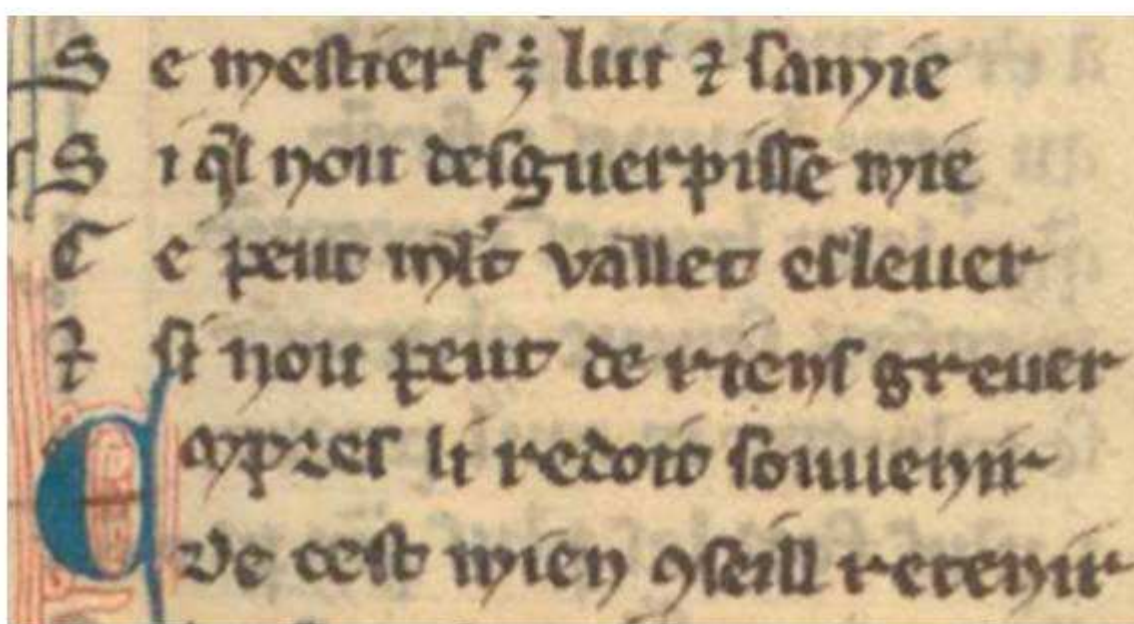 S e mestiers ÷ lui ⁊ samie
S i q̃l nou desguerpisse mie
C e peut ml't vallet esleuer
⁊ si nou peut de riens greuer
E mpres li redoit souuenir
De cest mien ꝯseill retenir